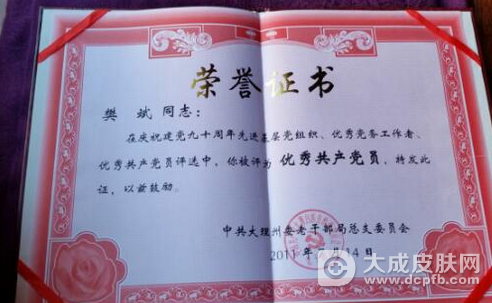 荣誉证书
樊 斌 同志：
在庆祝建党九十周年先进基层党组织、优秀党务工作者、
优秀共产党员评选中，你被评为 优秀共产党员，特发此
证，以兹鼓励。
中共大理州委老干部局总支委员会
2011年 月14日
大成皮肤网
www.dcpfb.com